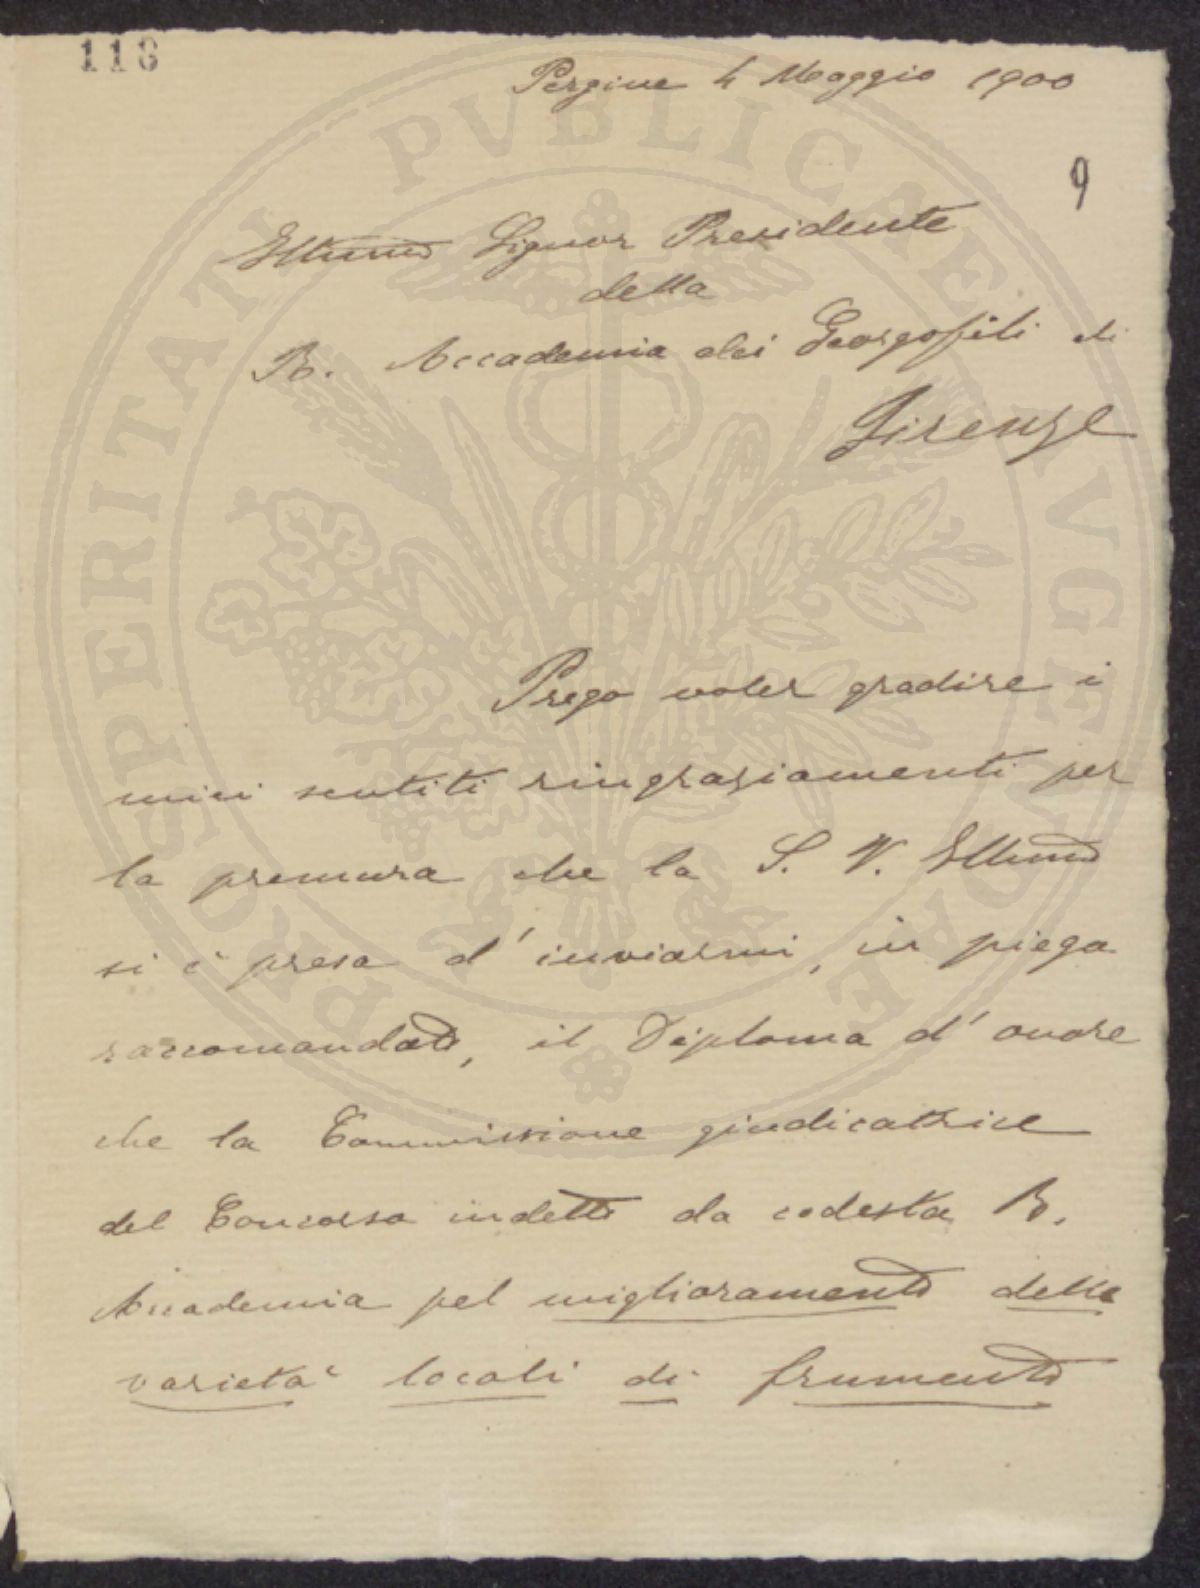 118
Pergine 4 Maggio 1900
9
Illumo Signor Presidente
della
R. Accademia dei Georgofili di
Firenze
Prego voler gradire i
miei sentiti ringraziamenti per
la premura che la S. V. Illuma
si è presa d'inviarmi, in piego
raccomandato, il Diploma d'onore
che la Commissione giudicatrice
del Concorso indetto da codesta R.
Accademia pel miglioramento delle
varietà locali di frumento
PROSPERITATI PVBLICAE AVGENDAE